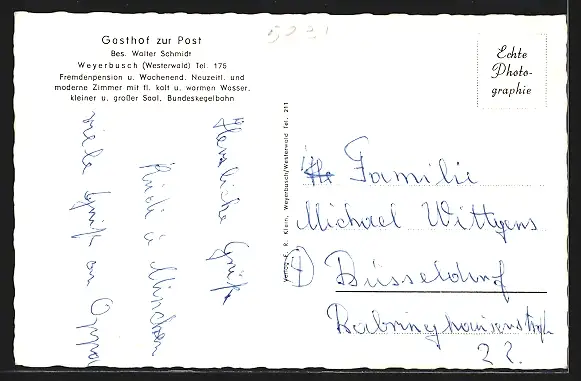 5221
Gasthof zur Post
Bes. Walter Schmidt
Weyerbusch (Westerwald) Tel. 175
Fremdenpension u. Wochenend. Neuzeitl. und
moderne Zimmer mit fl. kalt u. warmen Wasser,
kleiner u. großer Saal, Bundeskegelbahn
Echte
Photo-
graphie
Verlag F. R. Klein, Weyerbusch/Westerwald Tel. 211
Herzliche Grüße
viele Grüße an
Familie
Michael Wittgens
Düsseldorf
22.